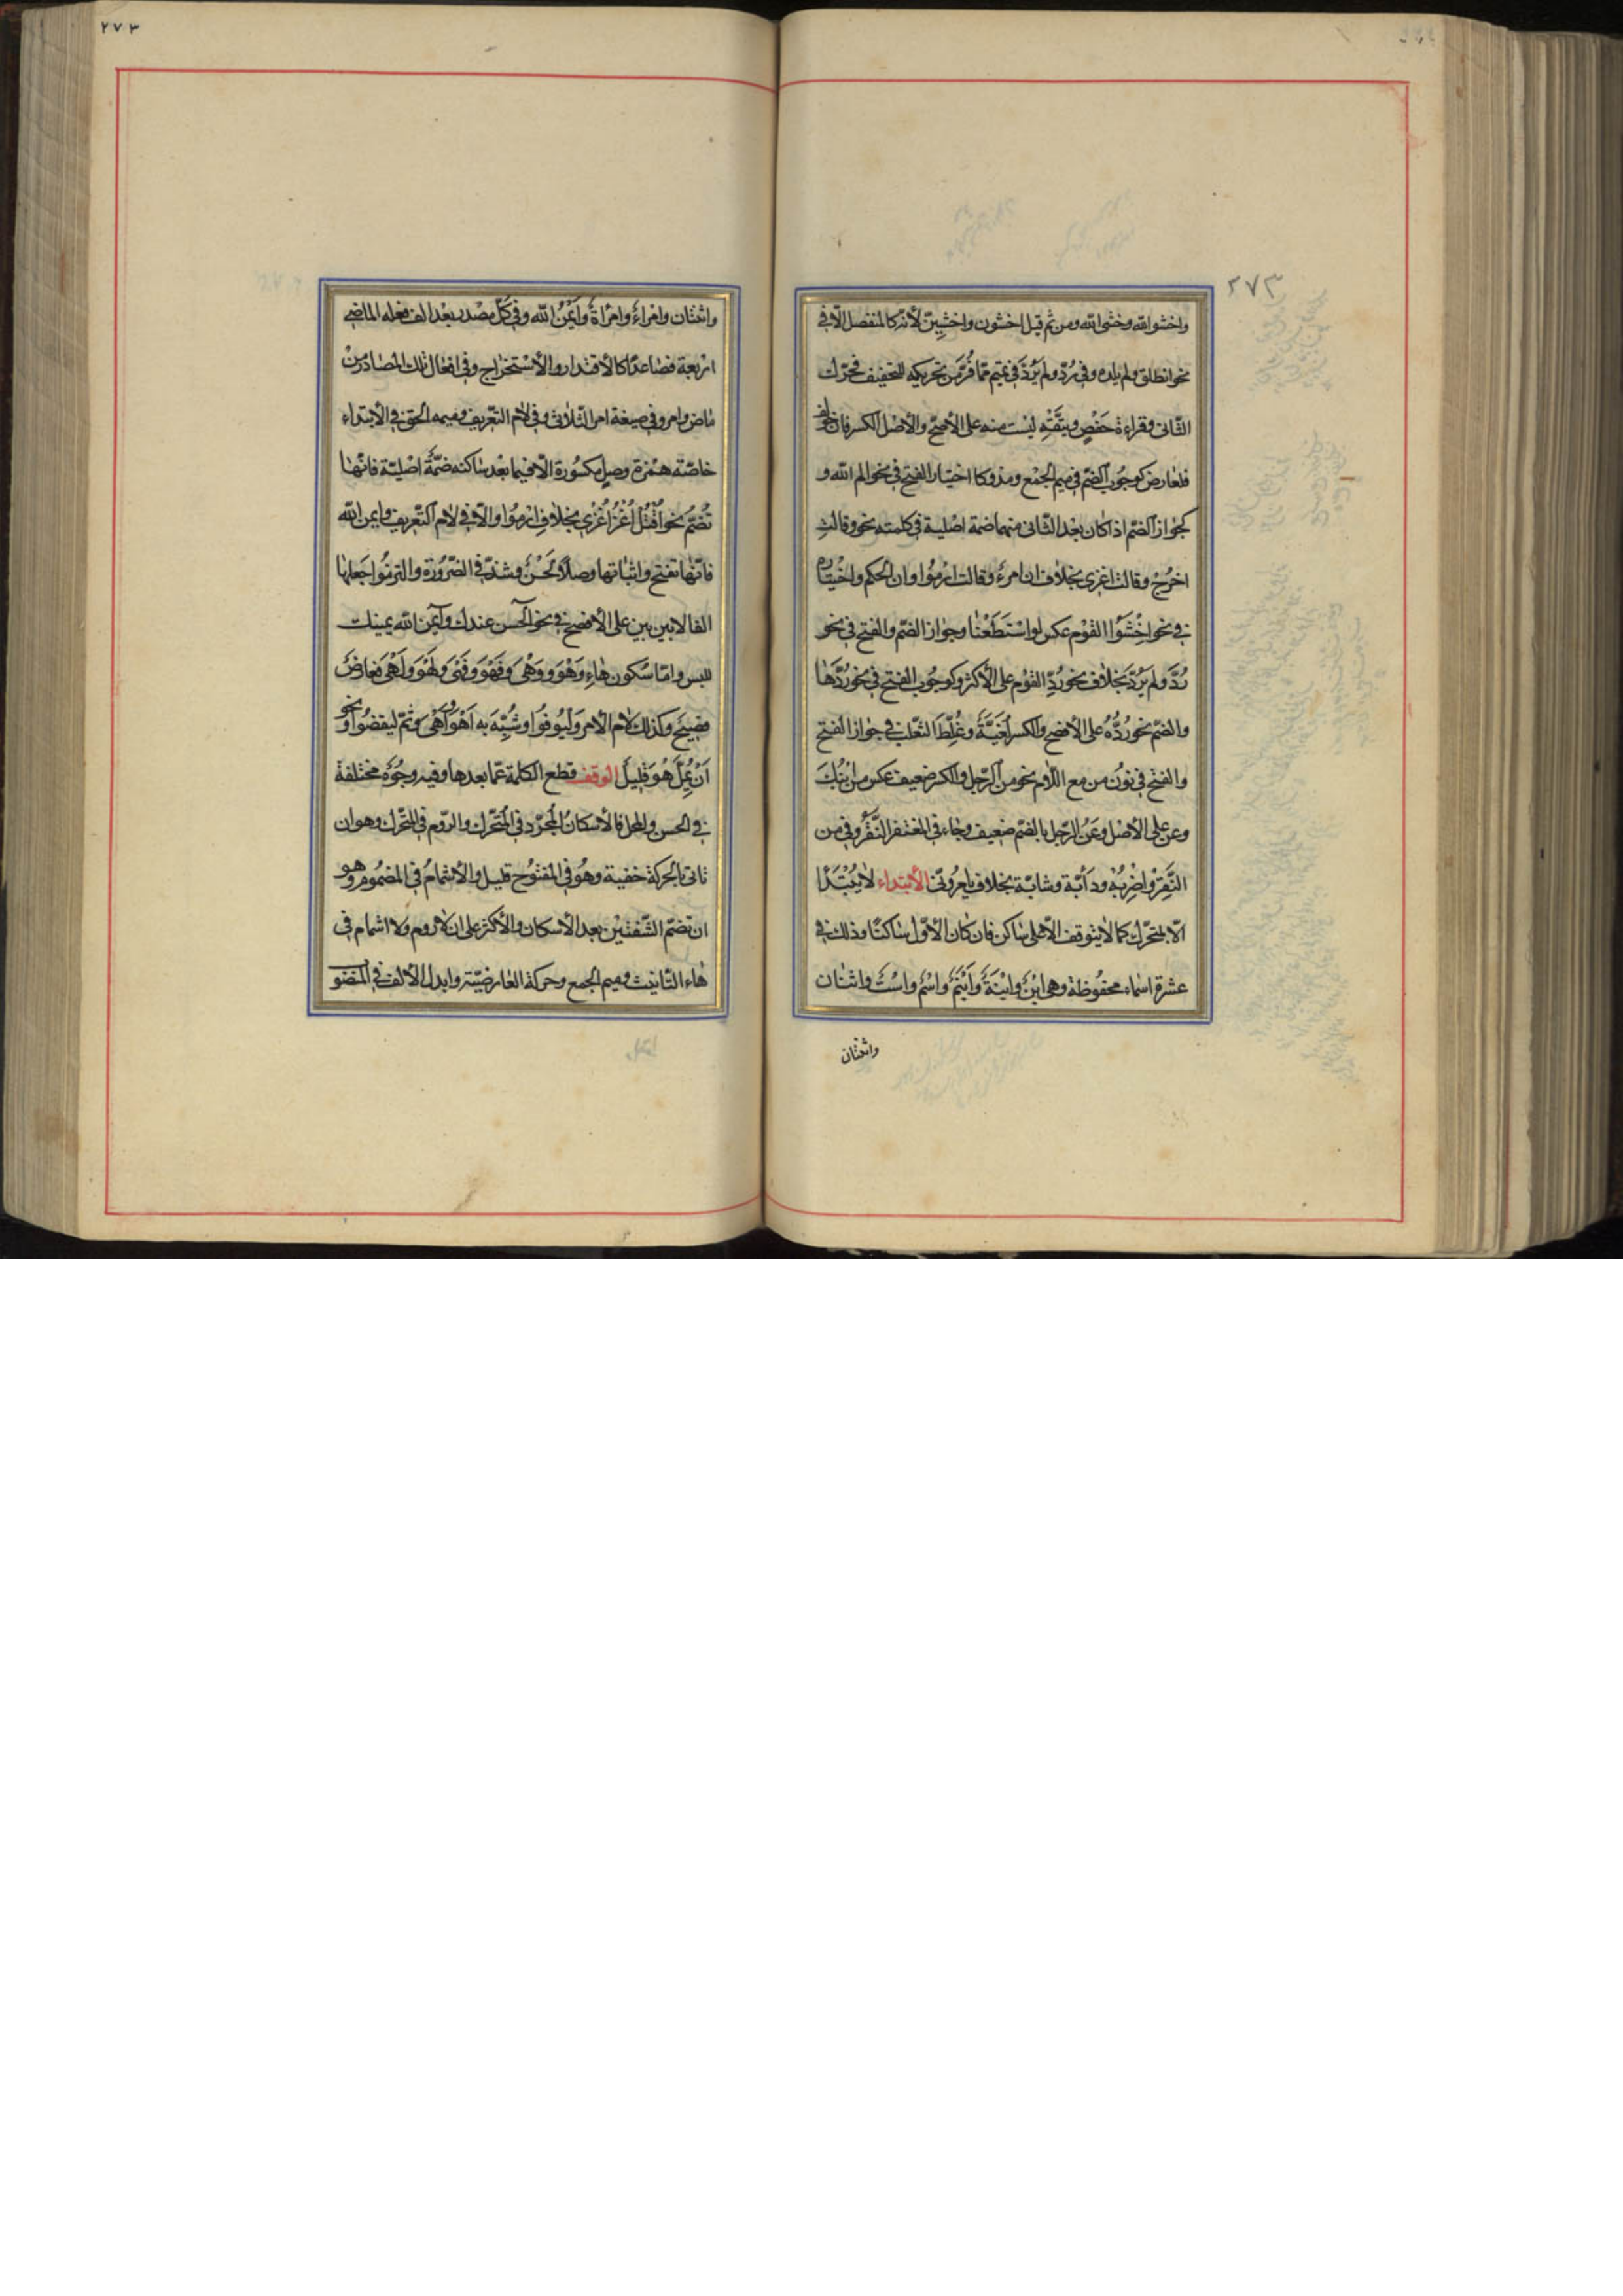 ٢٧٣
واخشوا الله واخشى الله ومن ثم قيل اخشون واخشين لانه كالمنفصل الا في
نحو انطلق ولم يلده وفي رد ولم يرد في تميم مما فر من تحريكه للتخفيف فحرك
الثانى وقراءة حفص ويتقه ليست منه على الأصح والأصل الكسر فان خولف
فلعارض كوجوب الضم في ميم الجمع ومذ وكاختيار الفتح في نحو الم الله و
كجواز الضم اذا كان بعد الثانى منهما ضمة اصلية في كلمته نحو وقالت
اخرج وقالت اغزى بخلاف ان امرؤ وقالت ارموا وان الحكم واختياره
في نحو اخشوا القوم عكس لو استطعنا وجواز الضم والفتح في نحو
رد ولم يرد بخلاف نحو رد القوم على الأكثر وكوجوب الفتح في نحو ردها
والضم نحو رده على الأفصح والكسر لغية وغلط الثعلب في جواز الفتح
والفتح في نون من مع اللام نحو من الرجل والكسر ضعيف عكس من ابنك
وعن على الأصل وعن الرجل بالضم ضعيف وجاء في المغتفر النقر وفي من
النقر واضربه ودأبة وشأبة بخلاف تأمرونى الأبتداء لا يبتدأ
الا بمتحرك كما لا يتوقف الا على ساكن فان كان الأول ساكنا وذلك في
عشرة اسماء محفوظة وهي ابن وابنة وابنم واسم واست واثنان
واثنتان
٢٧٣
واثنتان وامرؤ وامرأة وايمن الله وفي كل مصدر بعد الف فعله الماضى
اربعة فصاعدا كالأقتدار والأستخراج وفي افعال تلك المصادر من
ماض وامر وفي صيغة امر الثلاثى وفي لام التعريف وميمه الحق في الأبتداء
خاصة همزة وصل مكسورة الا فيما بعد ساكنه ضمة اصلية فانها
تضم نحو اقتل اغز اغزى بخلاف ارموا والا في لام التعريف وايمن الله
فانها تفتح واثباتها وصلا لحن وشذ في الضرورة والتزموا جعلها
الفا لا بين بين على الأفصح في نحو آلحسن عندك وآيمن الله يمينك
للبس واما سكون هاء وهو وهي وفهو وفهي ولهو ولهي فعارض
فصيح وكذلك لام الأمر وليوفوا وشبه به اهو واهي وثم ليقضوا ونحو
ان يمل هو قليل الوقف قطع الكلمة عما بعدها وفيه وجوه مختلفة
في الحسن والمحل فالأسكان المجرد في المتحرك والروم في المتحرك وهو ان
تاتى بالحركة خفية وهو في المفتوح قليل والأشمام في المضموم وهو
ان تضم الشفتين بعد الأسكان والأكثر على ان لا روم ولا اشمام في
هاء التانيث وميم الجمع وحركة العارضية وابدال الألف في المنصو